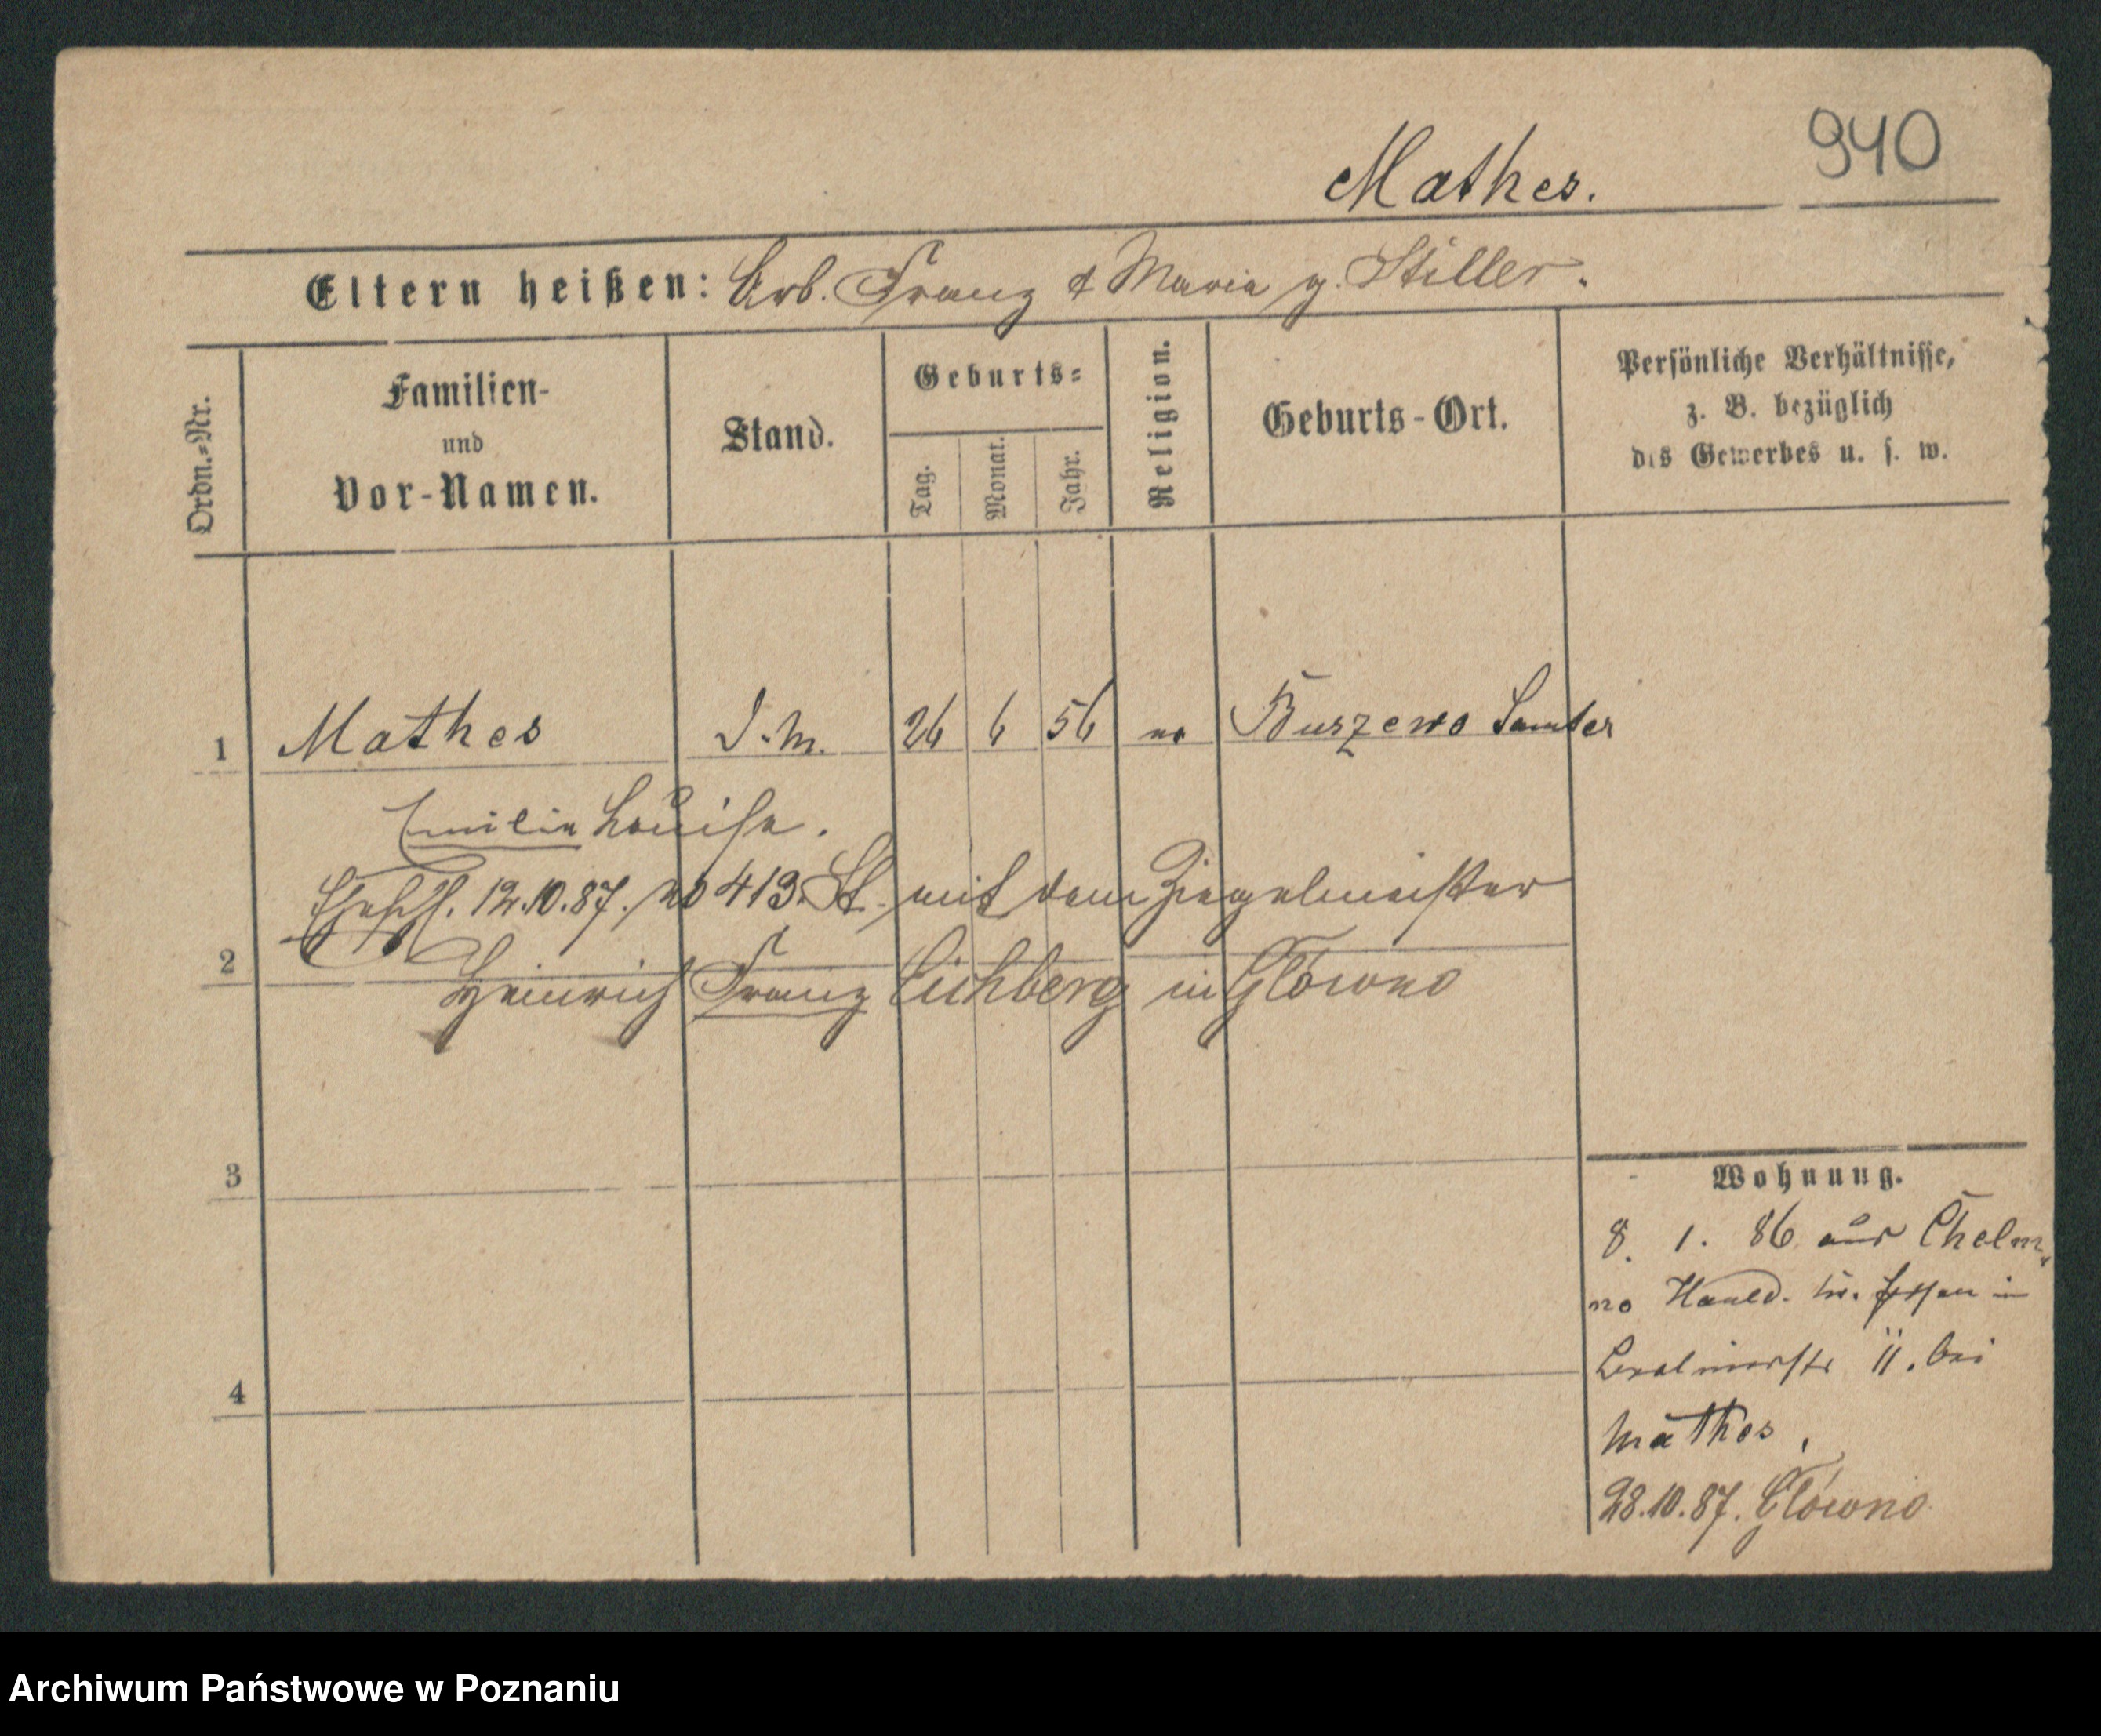 940
Mathes.
Eltern heißen: Arb. Franz & Maria g. Stiller.
Ordn.=Nr.
Familien-
und
Vor-Namen.
Stand.
Geburts=
Tag.
Monat.
Jahr.
Religion.
Geburts-Ort.
Persönliche Verhältnisse,
z. B. bezüglich
des Gewerbes u. s. w.
1 Mathes D. M. 26 6 56 Buszewo Samter
Emilie Louise.
Eheschl. 12.10.87. No 413. St. mit dem Ziegelmeister
2
Heinrich Franz Eichberg in Glowno
3
4
Wohnung.
8. 1. 86 aus Chelm
no
in
II. bei
Mathes,
28.10.87. Glowno
Archiwum Państwowe w Poznaniu